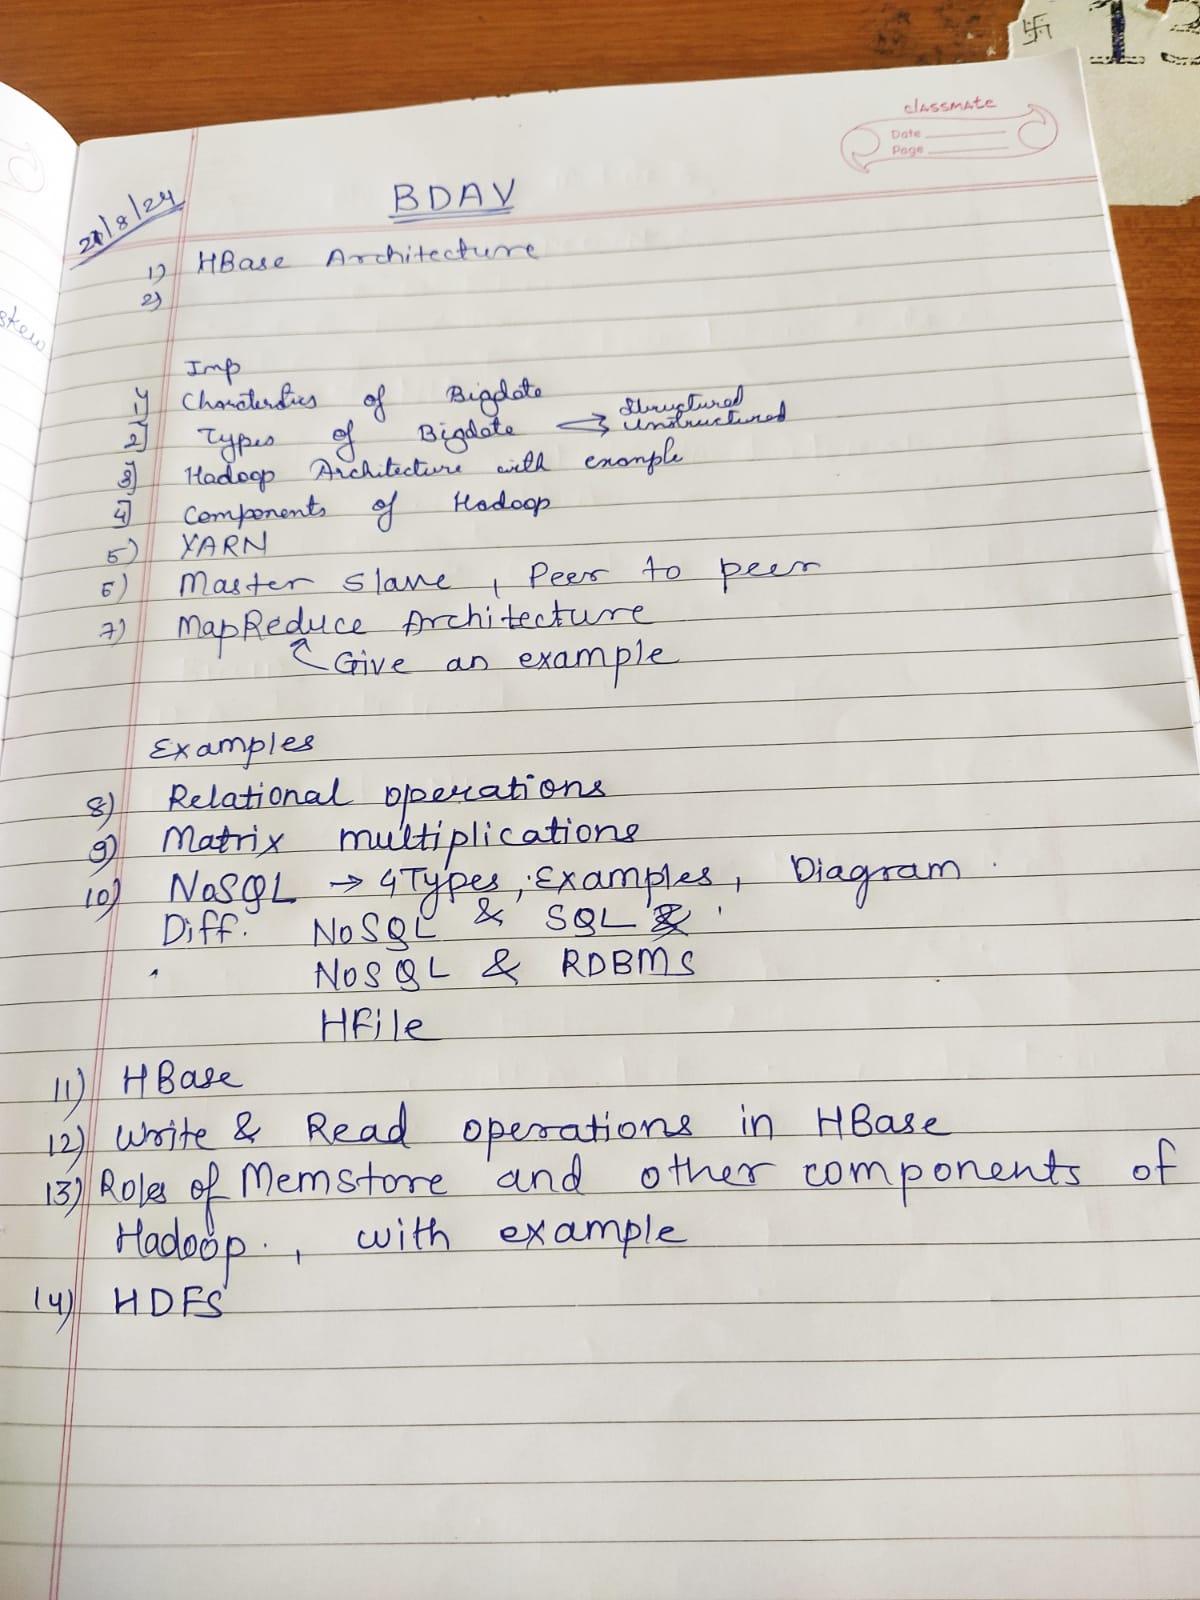 13
classmate
Date
Page
21/8/24
BDAV
1) HBase Architecture
2)
skew
Imp
1] Charcterstics of Bigdata
2] Types of Bigdata → Structured
Unstructured
3] Hadoop Architecture with example
4] Components of Hadoop
5) YARN
6) Master slave, Peer to peer
7) MapReduce Architecture
Give an example
Examples
8) Relational operations
9) Matrix multiplications
10) NoSQL → 4 Types, Examples, Diagram.
Diff. NoSQL & SQL
NoSQL & RDBMS
HFile
11) HBase
12) Write & Read operations in HBase
13) Roles of Memstore and other components of
Hadoop., with example
14) HDFS